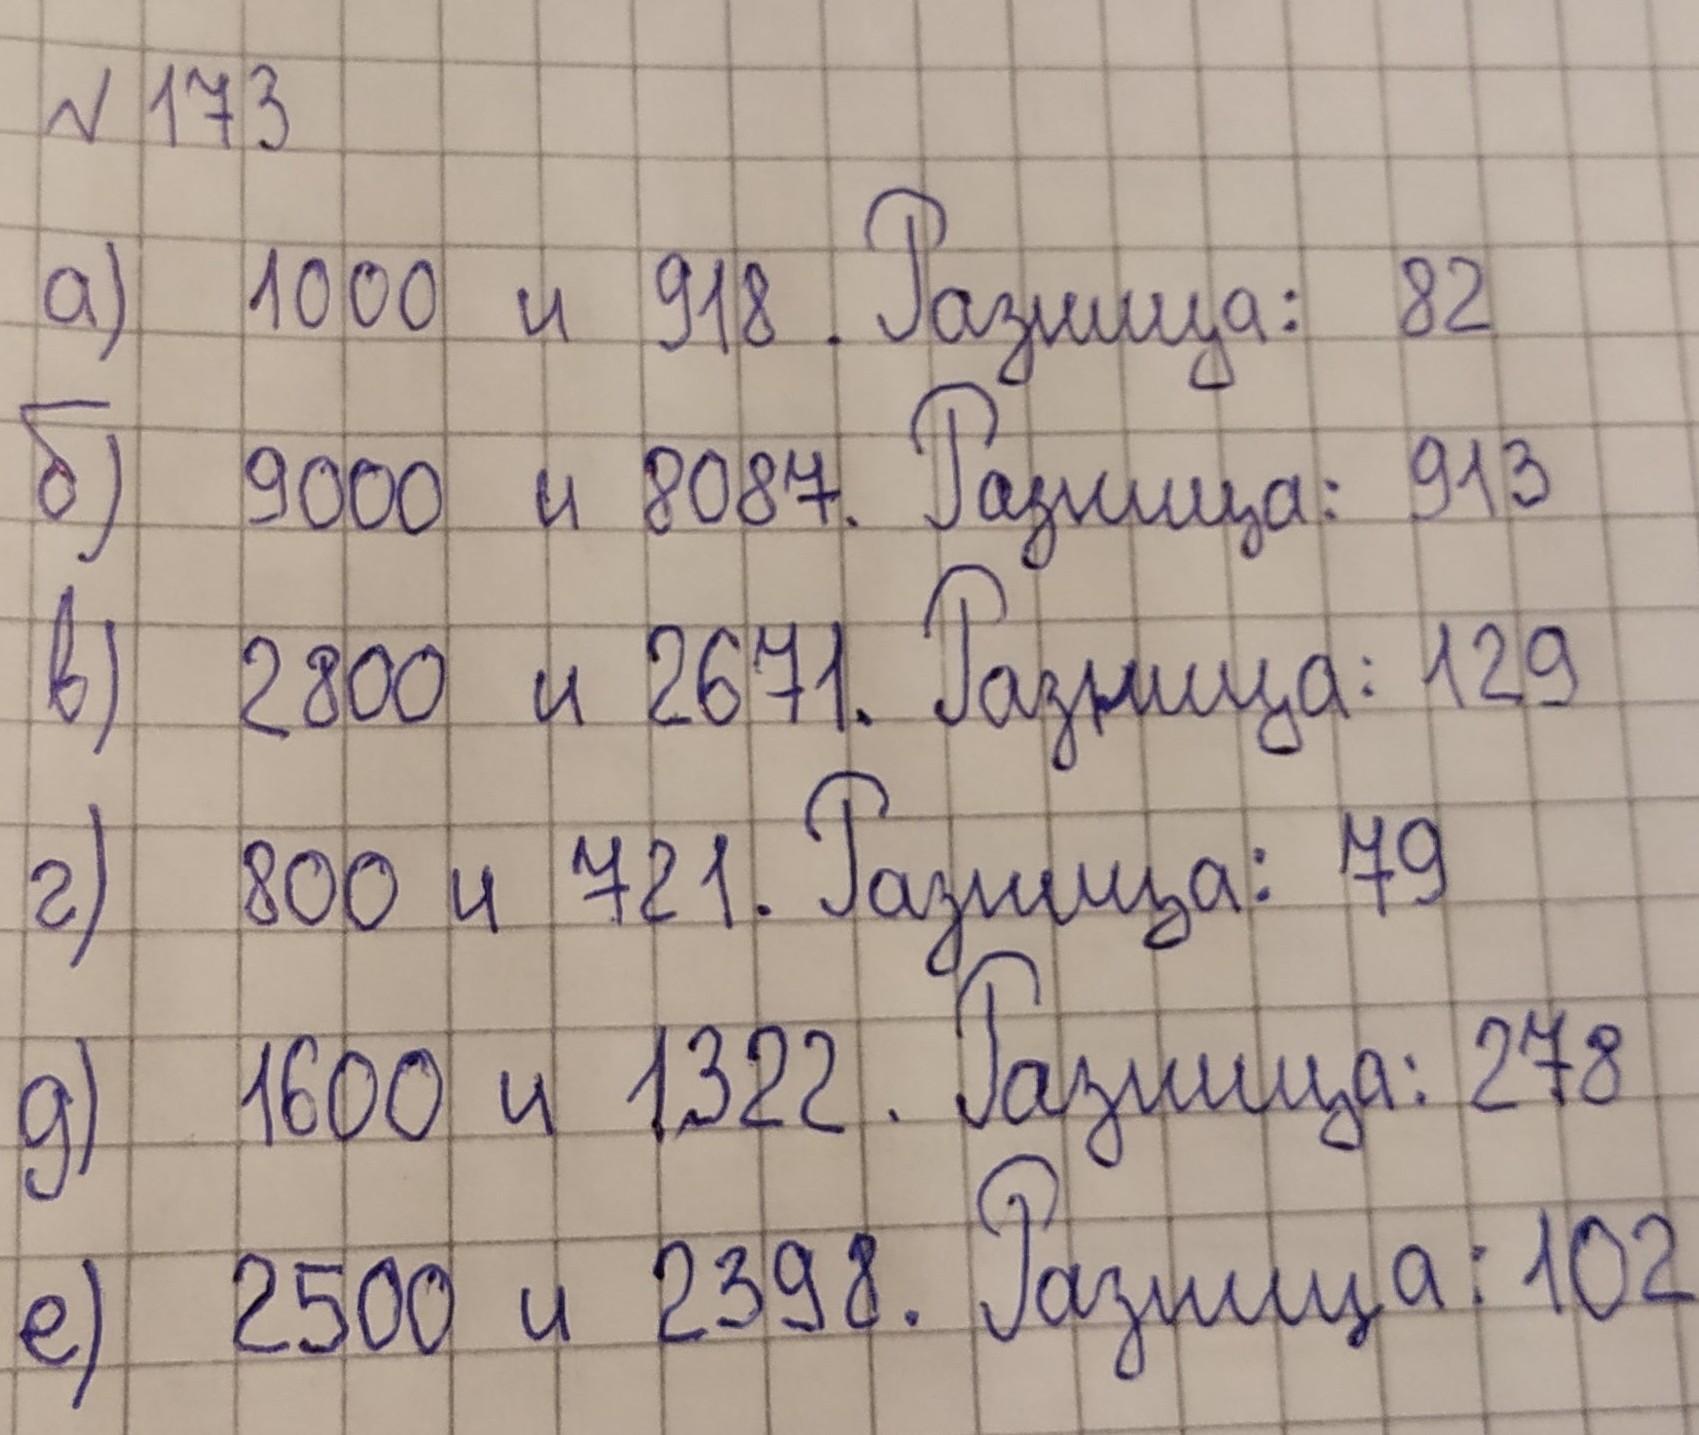 № 173
а) 1000 и 918. Разница: 82
б) 9000 и 8087. Разница: 913
в) 2800 и 2671. Разница: 129
г) 800 и 721. Разница: 79
д) 1600 и 1322. Разница: 278
е) 2500 и 2398. Разница: 102